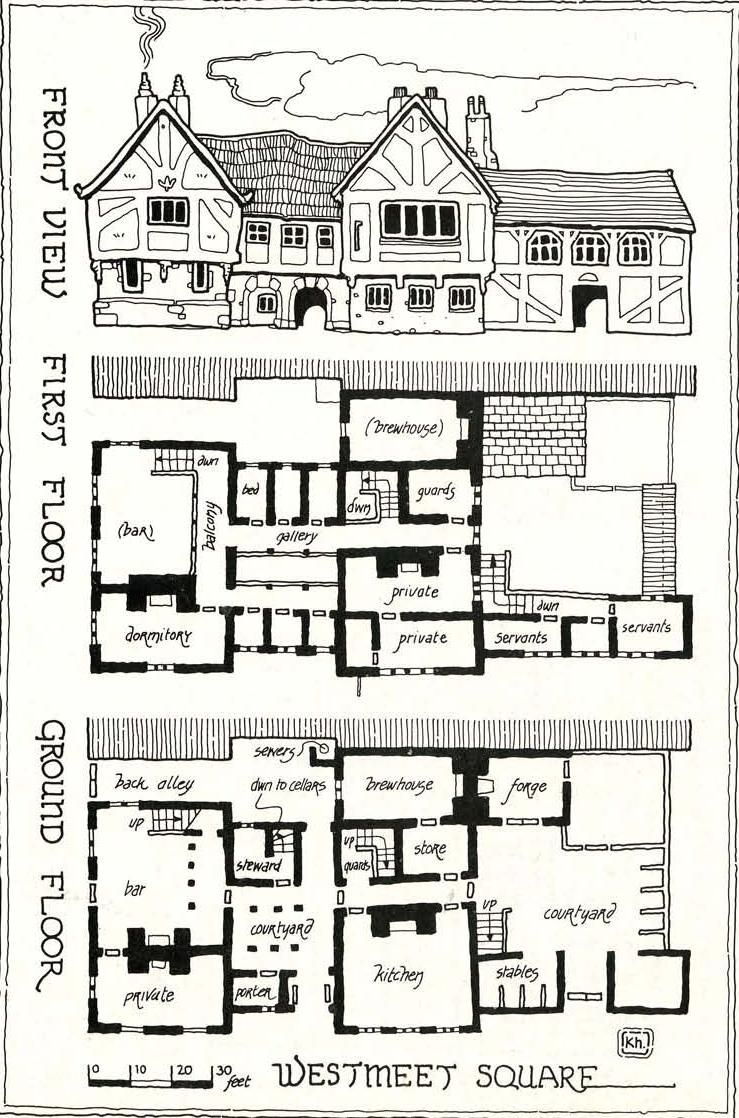 FRONT VIEW
FIRST FLOOR
(brewhouse)
dwn
bed
dwn
guards
(bar)
balcony
gallery
private
dwn
dormitory
private
servants
servants
GROUND FLOOR
sewers
back alley
dwn to cellars
brewhouse
forge
up
up
steward
guards
store
bar
up
courtyard
courtyard
kitchen
stables
private
porter
Kh.
0 10 20 30 feet
WESTMEET SQUARE